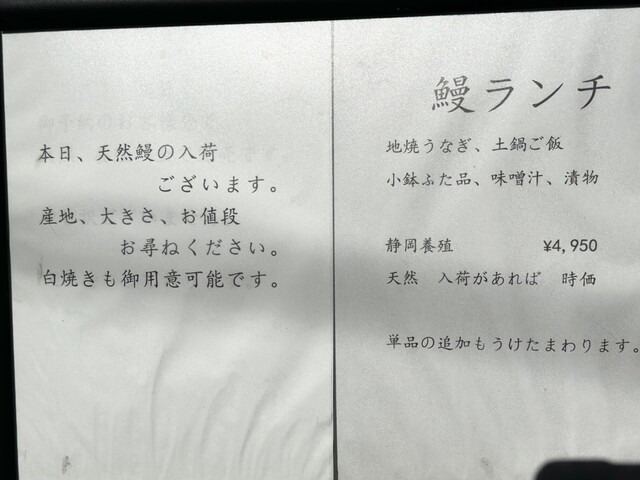 本日、天然鰻の入荷
ございます。
産地、大きさ、お値段
お尋ねください。
白焼きも御用意可能です。
鰻ランチ
地焼うなぎ、土鍋ご飯
小鉢ふた品、味噌汁、漬物
静岡養殖 ¥4,950
天然 入荷があれば 時価
単品の追加もうけたまわります。